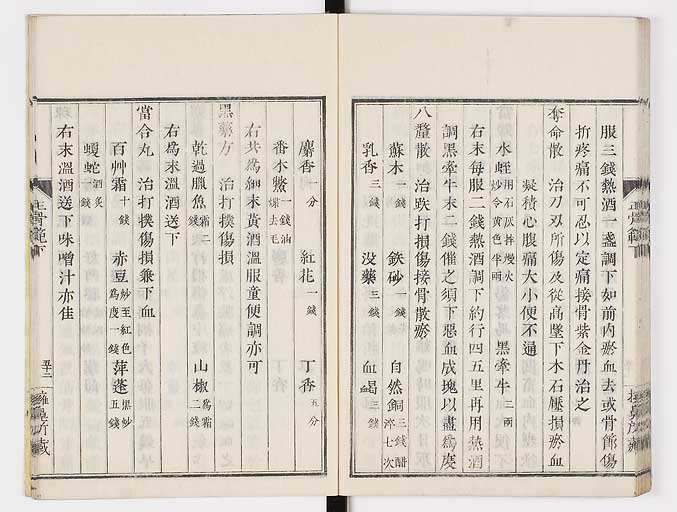 服三錢熱酒一盞調下如前內瘀血去或骨節傷
折疼痛不可忍以定痛接骨紫金丹治之
奪命散　治刀刃所傷及從高墜下木石壓損瘀血
凝積心腹痛大小便不通
水蛭用石灰拌慢火炒令黃色半兩　黑牽牛二兩
右末每服二錢熱酒調下約行四五里再用熱酒
調黑牽牛末二錢催之須下惡血成塊以盡為度
八釐散　治跌打損傷接骨散瘀
蘇木一錢　鉄砂一錢　自然銅三錢醋淬七次
乳香三錢　没藥三錢　血竭三錢
麝香一分　紅花一錢　丁香五分
番木鱉一錢油煠去毛
右共為細末黃酒溫服童便調亦可
黑藥方　治打撲傷損
乾過臘魚霜二錢　山椒為霜二錢
右為末溫酒送下
當合丸　治打撲傷損兼下血
百艸霜十錢　赤豆炒至紅色為度一錢　萍蓬黑炒五錢
蝮蛇酒炙一錢
右末溫酒送下味噌汁亦佳
正骨範下
五十三